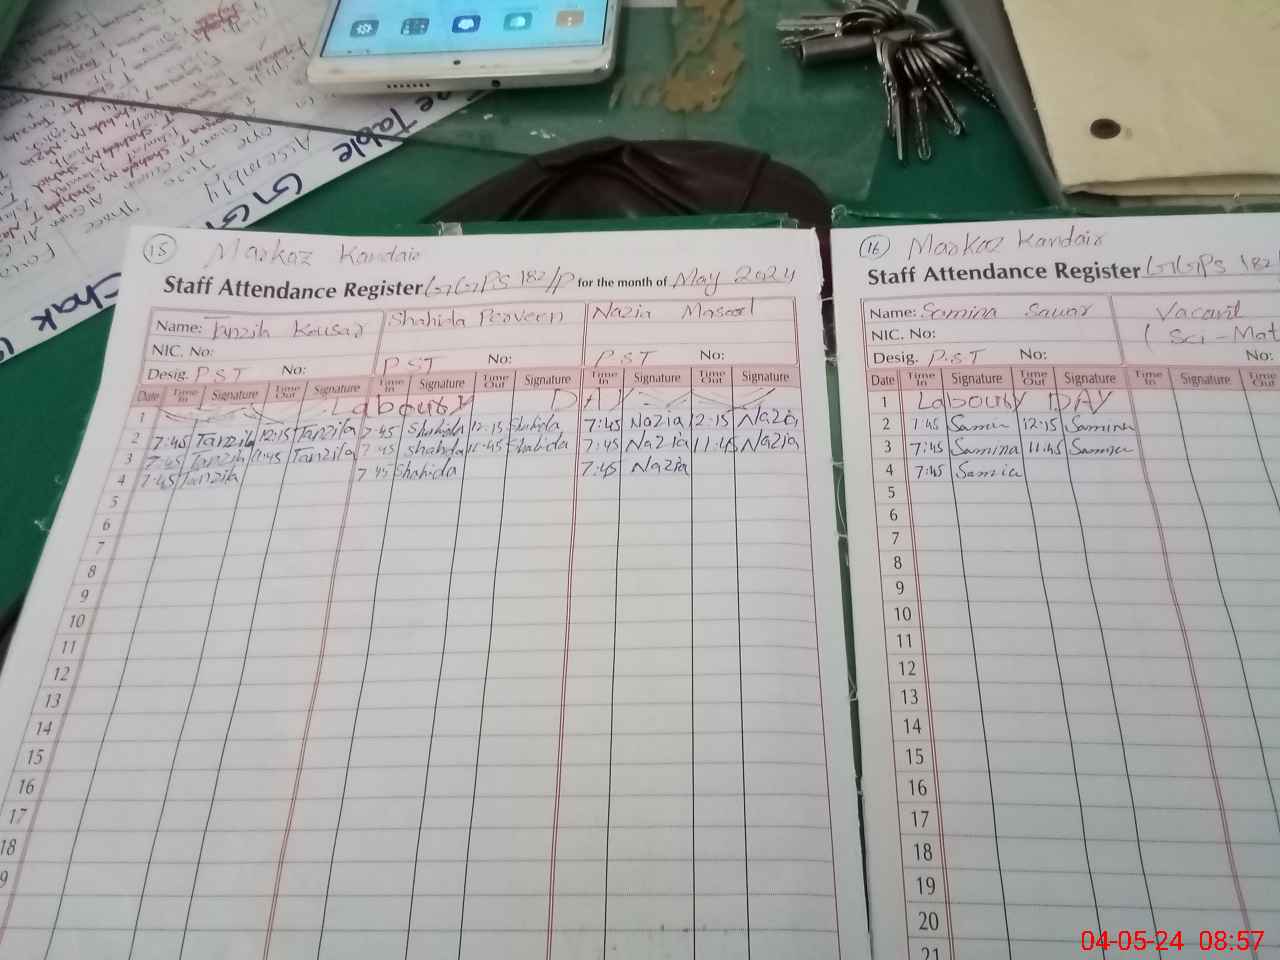 me Table
Assembly
Three
Four
GG
Chak
15 Markaz Kandair
Staff Attendance Register GGPS 182/P for the month of May 2024
Name: Tanzila Kousar Shahida Perveen Nazia Masood
NIC. No:
Desig. P.S.T No: P.S.T No: P.S.T No:
Date Time In Signature Time Out Signature Time In Signature Time Out Signature Time In Signature Time Out Signature
1 Laboury DAY
2 7:45 Tanzila 12:15 Tanzila 7:45 Shahida 12:15 Shahida 7:45 Nazia 12:15 Nazia
3 7:45 Tanzila 11:45 Tanzila 7:45 Shahida 11:45 Shahida 7:45 Nazia 11:45 Nazia
4 7:45 Tanzila 7:45 Shahida 7:45 Nazia
5
6
7
8
9
10
11
12
13
14
15
16
17
18
9
16 Markaz Kandair
Staff Attendance Register GGPS 182/
Name: Samina Sawar Vacant
NIC. No: (Sci-Mat
Desig. P.S.T No: No:
Date Time In Signature Time Out Signature Time In Signature Time Out
1 Laboury DAY
2 7:45 Samina 12:15 Samina
3 7:45 Samina 11:45 Samina
4 7:45 Samina
5
6
7
8
9
10
11
12
13
14
15
16
17
18
19
20
21
04-05-24 08:57